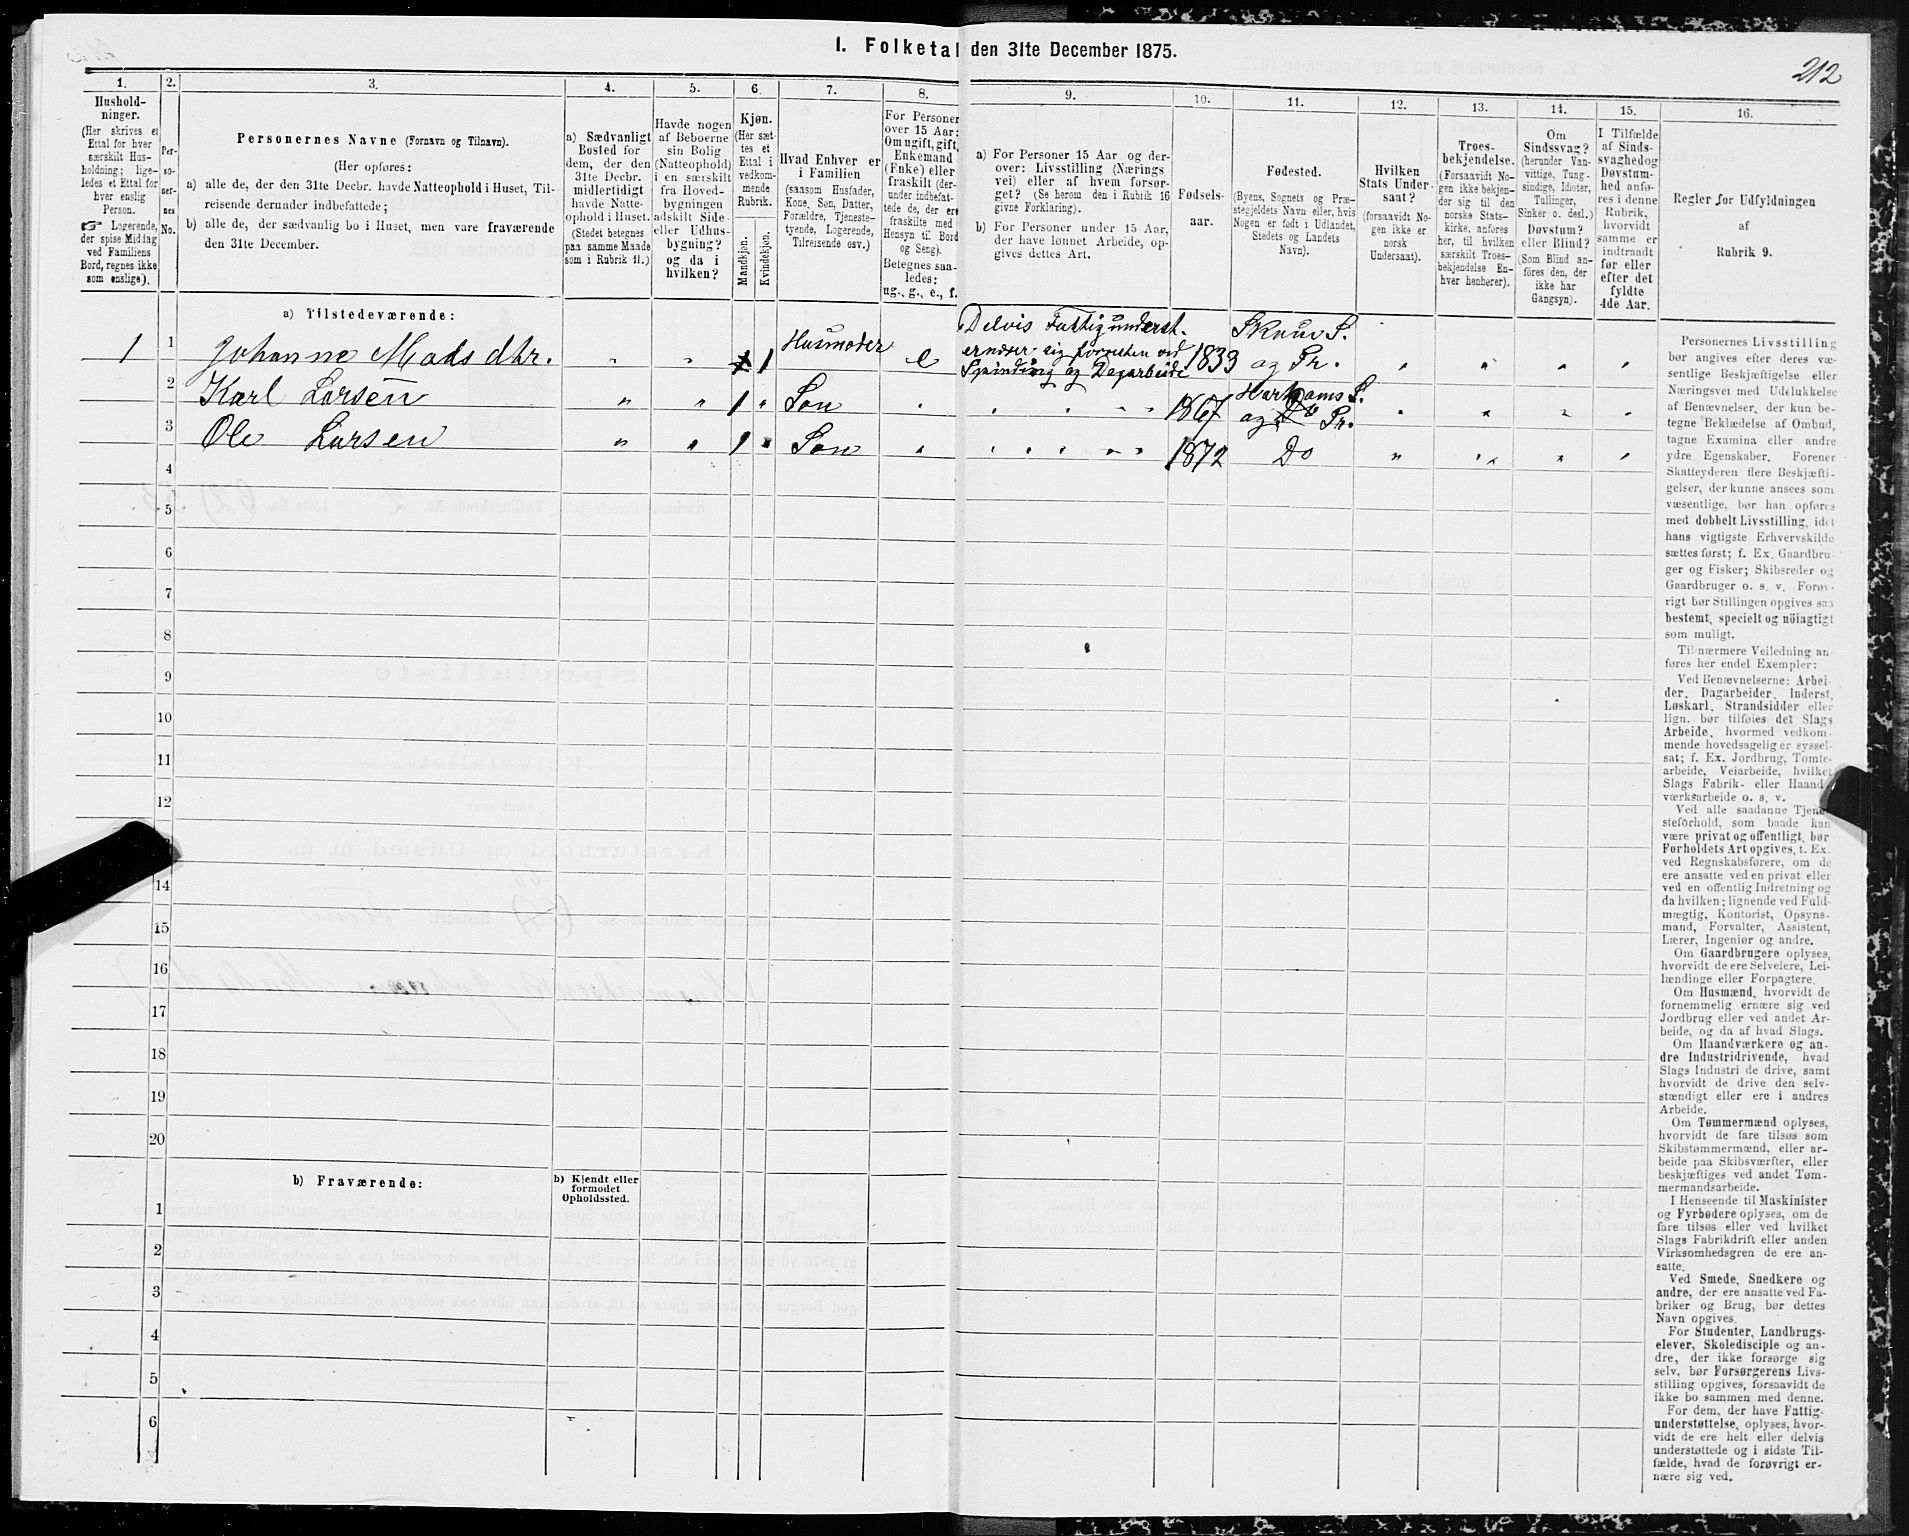 I. Folketal den 31te December 1875.
212
1.
2.
3.
4.
5.
6.
7.
8.
9.
10.
11.
12.
13.
14.
15.
16.
Hushold-
ninger.
(Her skrives et
Ettal for hver
særskilt Hus-
holdning; lige-
ledes et Ettal for
hver enslig
Person.
☞ Logerende,
der spise Middag
ved Familiens
Bord, regnes ikke
som enslige).
Per-
so-
ner-
nes
No.
Personernes Navne (Fornavn og Tilnavn).
(Her opføres:
a) alle de, der den 31te Decbr. havde Natteophold i Huset, Til-
reisende derunder indbefattede;
b) alle de, der sædvanlig bo i Huset, men vare fraværende
den 31te December.
a) Sædvanligt
Bosted for
dem, der den
31te Decbr.
midlertidigt
havde Natte-
ophold i Huset.
(Stedet betegnes
paa samme Maade
som i Rubrik 11.)
Havde nogen
af Beboerne
sin Bolig
(Natteophold)
i en særskilt
fra Hoved-
bygningen
adskilt Side-
eller Udhus-
bygning?
og da i
hvilken?
Kjøn.
(Her sæt-
tes et
Ettal i
vedkom-
mende
Rubrik.
Mandkjøn.
Kvindekjøn.
Hvad Enhver er
i Familien
(saasom Husfader,
Kone, Søn, Datter,
Forældre, Tjeneste-
tyende, Logerende,
Tilreisende osv.)
For Personer
over 15 Aar:
Om ugift, gift,
Enkemand
(Enke) eller
fraskilt (der-
under indbefat-
tede de, der ere
fraskilte med
Hensyn til Bord
og Seng).
Betegnes saa-
ledes:
ug., g., e., f.
a) For Personer 15 Aar og der-
over: Livsstilling (Nærings
vei) eller af hvem forsør-
get? (Se herom den i Rubrik 16
givne Forklaring).
b) For Personer under 15 Aar,
der have lønnet Arbeide, op-
gives dettes Art.
Fødsels-
aar.
Fødested.
(Byens, Sognets og Præ-
stegjeldets Navn eller, hvis
Nogen er født i Udlandet,
Stedets og Landets
Navn).
Hvilken
Stats Under-
saat?
(forsaavidt No-
gen ikke er
norsk
Undersaat).
Troes-
bekjendelse.
(Forsaavidt No-
gen ikke bekjen-
der sig til den
norske Stats-
kirke, anføres
her, til hvilken
særskilt Troes-
bekjendelse En-
hver henhører).
Om
Sindssvag?
(herunder Van-
vittige, Tung-
sindige, Idioter,
Tullinger,
Sinker o. desl.)
Døvstum?
eller Blind?
(Som Blind an-
føres den, der
ikke har
Gangsyn).
I Tilfælde
af Sinds-
svaghed og
Døvstum-
hed anfø-
res i denne
Rubrik,
hvorvidt
samme er
indtraadt
før eller
efter det
fyldte
4de Aar.
Regler for Udfyldningen
af
Rubrik 9.
a) Tilstedeværende:
1 1 Johanne Mads dtr. " " 1 Husmoder e Delvis Fattigunderst. ernærer sig forresten ved Spinding og Dagarbeide 1833 Skouv S. og Pr. " " " "
2 Karl Larsen " " 1 " Søn " " " " " 1867 Harhams S. og Pr. " " " "
3 Ole Larsen " " 1 " Søn " " " " " 1872 Do " " " "
4
5
6
7
8
9
10
11
12
14
15
16
17
18
19
20
b) Fraværende:
b) Kjendt eller
formodet
Opholdssted.
1
2
3
4
5
6
Personernes Livsstilling
bør angives efter deres væ-
sentlige Beskjæftigelse eller
Næringsvei med Udelukkelse
af Benævnelser, der kun be-
tegne Beklædelse af Ombud,
tagne Examina eller andre
ydre Egenskaber. Forener
Skatteyderen flere Beskjæfti-
gelser, der kunne ansees som
væsentlige, bør han opføres
med dobbelt Livsstilling, idet
hans vigtigste Erhvervskilde
sættes først; f. Ex. Gaardbru-
ger og Fisker; Skibsreder og
Gaardbruger o. s. v. Forøv-
rigt bør Stillingen opgives saa
bestemt, specielt og nöiagtigt
som muligt.
Til nærmere Veiledning an-
føres her endel Exempler:
Ved Benævnelserne: Arbei-
der, Dagarbeider, Inderst,
Løskarl, Strandsidder eller
lign. bør tilføies det Slags
Arbeide, hvormed vedkom-
mende hovedsagelig er syssel-
sat; f. Ex. Jordbrug, Tomte-
arbeide, Veiarbeide, hvilket
Slags Fabrik- eller Haand-
værksarbeide o. s. v.
Ved alle saadanne Tjene-
steforhold, som baade kan
være privat og offentligt, bør
Forholdets Art opgives, t. Ex.
ved Regnskabsførere, om de
ere ansatte ved en privat eller
ved en offentlig Indretning og
da hvilken; lignende ved Fuld-
mægtig, Kontorist, Opsyns-
mand, Forvalter, Assistent,
Lærer, Ingeniør og andre.
Om Gaardbrugere oplyses,
hvorvidt de ere Selveiere, Lei-
lændinge eller Forpagtere.
Om Husmænd, hvorvidt de
fornemmelig ernære sig ved
Jordbrug eller ved andet Ar-
beide, og da af hvad Slags.
Om Haandværkere og an-
dre Industridrivende, hvad
Slags Industri de drive, samt
hvorvidt de drive den selv-
stændigt eller ere i andres
Arbeide.
Om Tømmermænd oplyses,
hvorvidt de fare tilsøs som
Skibstømmermænd, eller ar-
beide paa Skibsværfter, eller
beskjæftiges ved andet Tøm-
mermandsarbeide.
I Henseende til Maskinister
og Fyrbødere oplyses, om de
fare tilsøs eller ved hvilket
Slags Fabrikdrift eller anden
Virksomhedsgren de ere an-
satte.
Ved Smede, Snedkere og
andre, der ere ansatte ved Fa-
briker og Brug, bør dettes
Navn opgives.
For Studenter, Landbrugs-
elever, Skoledisciple og an-
dre, der ikke forsørge sig
selv, bør Forsørgerens Livs-
stilling opgives, forsaavidt de
ikke bo sammen med denne.
For dem, der have Fattig-
understøttelse, oplyses, hvor-
vidt de ere helt eller delvis
understøttede og i sidste Til-
fælde, hvad de forøvrigt er-
nære sig ved.